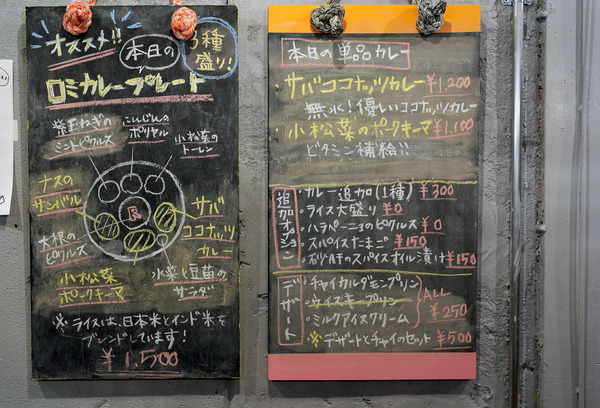 オススメ!!
本日の
3種盛り!
ロミカレープレート
紫玉ねぎの
ミントピクルス
にんじんの
ポリヤル
小松菜の
トーレン
ナスの
サンバル
大根の
ピクルス
小松菜
ポークキーマ
R
サバ
ココナッツ
カレー
水菜と豆苗の
サラダ
※ライスは、日本米とインド米を
ブレンドしています!
¥1,500
本日の単品カレー
・サバココナッツカレー¥1,200
無水!優しいココナッツカレー
・小松菜のポークキーマ¥1,100
ビタミン補給!!
追加オプション
・カレー追加(1種)¥300
・ライス大盛り¥0
・ハラペーニョのピクルス¥0
・スパイスたまご¥150
・砂肝のスパイスオイル漬け¥150
デザート
・チャイカルダモンプリン
・ウイスキープリン
・ミルクアイスクリーム
ALL
¥250
※デザートとチャイのセット¥500